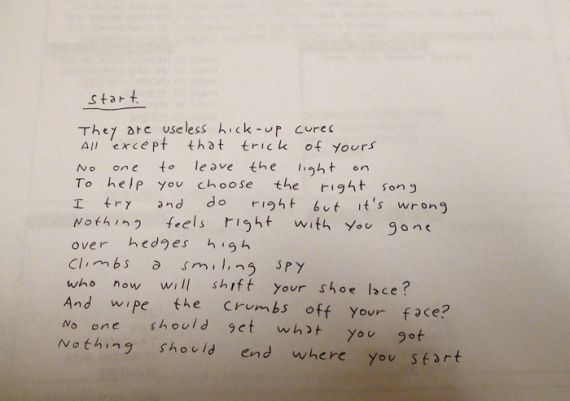 start.
They are useless hick-up cures
All except that trick of yours
No one to leave the light on
To help you choose the right song
I try and do right but it's wrong
Nothing feels right with you gone
over hedges high
Climbs a smiling spy
who now will shift your shoe lace?
And wipe the crumbs off your face?
No one should get what you got
Nothing should end where you start